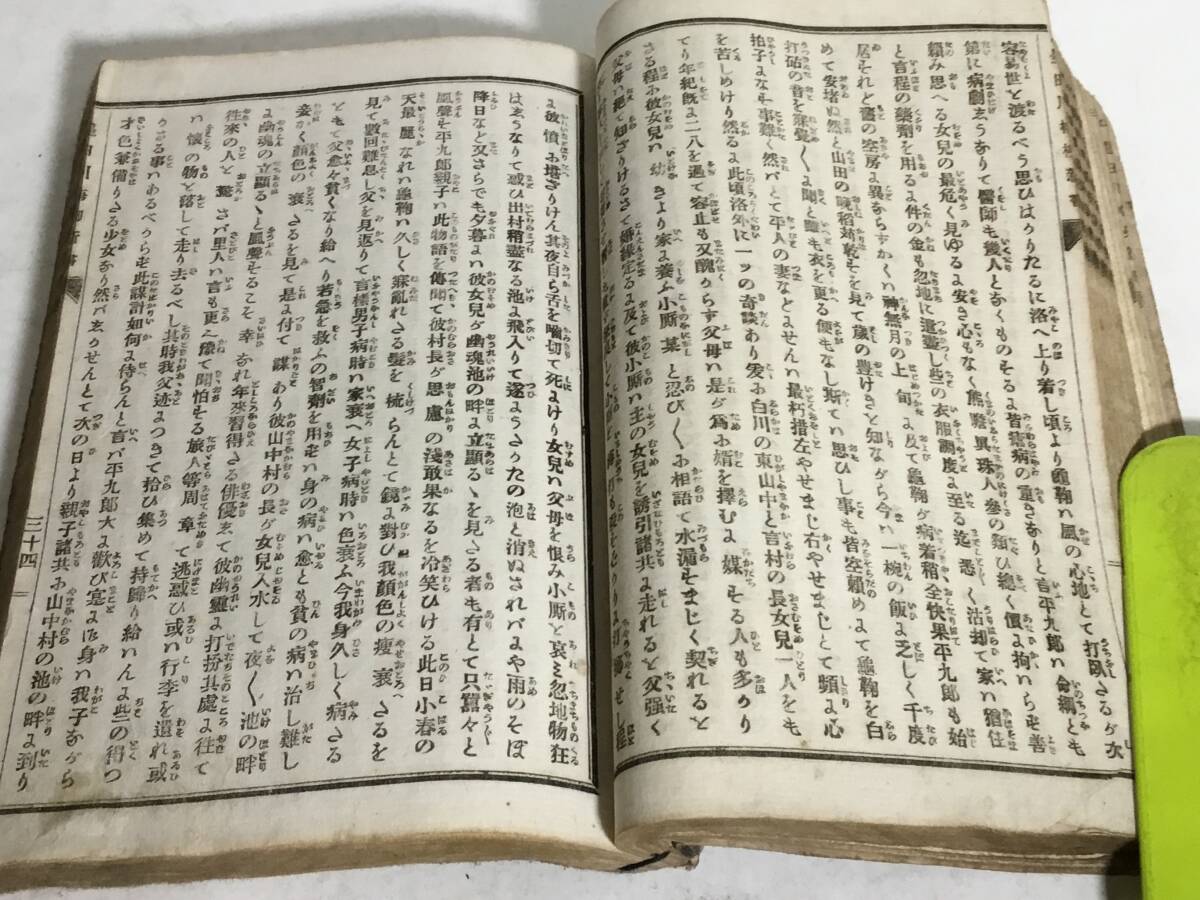 容易世と渡るべう思ひはかりたるに洛へ上り着し頃より龜鞠ハ風の心地とて打臥さるが次
第に病劇しうなりて醫師も幾人となくものするよ皆瘧病の重きなりと言平九郎ハ命綱とも
頼み思へる女兒の最危く見ゆるよ安き心もなく熊膽異珠人參の類ひ總く價よ拘らず善
と言程の藥劑を用るよ件の金も忽地に遣盡し些の衣服調度よ至る迄悉く沽却て家ハ猶住
居それど舊の空房よ異ならずかくハ神無月の上旬よ及て龜鞠が病着稍全快果平九郎も始
めて安堵ぬ然と山田の晩稻苅乾を見て歳の豊けきと知ながら今ハ一椀の飯よ乏しく千度
打砧の音を寐覺〱よ聞と雖も衣を更る便もなし斯てハ思ひし事も皆空頼めて龜鞠を白
拍子よなん事難く然バとて平人の妻などよせんハ最朽措左やせまじ右やせまじとて頻よ心
を苦しめけり然るよ此頃洛外に一ッの奇談あり爰お白川の東山中と言村の長女兒一人をも
てり年紀既よ二八を過て容止も又醜からず父母ハ是が爲お婿を擇むよ媒する人も多かり
さる程お彼女兒ハ幼きより家よ養ふ小厮某と忍び〱お相語て水漏さまじく契れると
父母ハ絶て知ざりけるさて婚縁定るよ及て彼小厮ハ主の女兒を誘引諸共よ走れると父強く
よ破憤お堪ざりけん其夜自ら舌を嚙切て死よけり女兒ハ父母を恨み小厮と哀ミ忽地物狂
はしうなりて或ひ出村稍盡なる池よ飛入りて遂ようたかたの泡と消ぬされバよや雨のそぼ
降日など又さらでも夕暮よハ彼女兒が幽魂池の畔よ立顯るゝを見さる者も有とて只囂々と
風聲を平九郎親子ハ此物語を傳聞て彼村長が思慮の淺敢果なるを冷笑ひける此日小春の
天最麗なれハ龜鞠ハ久しく寐亂れさる髮を梳らんとて鏡よ對ひ我顏色の瘦衰へさるを
見て數回難息し父を見返りて言樣男子病時ハ家衰へ女子病時ハ色衰ふ今我身久しく病さる
ともて父愈々貧くなり給へり若急を救ふの智劑を用ずハ身の病ハ愈とも貧の病ハ治し難し
妾が顏色の衰さるを見て是よ付て謀あり彼山中村の長が女兒入水して夜〱池の畔
よ幽魂の立顯るゝと風聲そるこそ幸なれ年來習得さる俳優ゑて彼幽靈よ打扮其處よ往て
往來の人と驚さバ里人ハ言も更よ豫て聞怕せる旅人等周章て逃惑ひ或ハ行李を遺れ或
ハ懷の物と落して走り去るべし其時我父迹よつきて拾ひ集めて持歸り給ハんよ些の得つ
かざる事ハあるべからず此謀計如何よ侍らんと言バ平九郎大よ歡び寔よ你ハ身ハ我子ながら
才色兼備りさる少女なり然バゑかせんとて次の日より親子諸共お山中村の池の畔よ到り
三十四